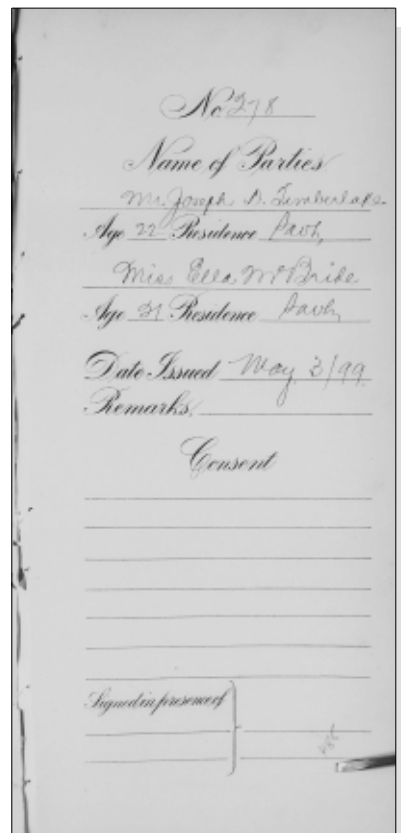 No 278
Name of Parties
Mr. Joseph D. Timberlake
Age 22 Residence Pavh
Miss Ella McBride
Age 21 Residence Pavh
Date Issued May 3/99
Remarks
Consent
Signed in presence of